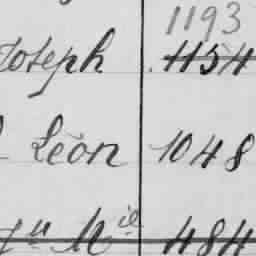 1193
Joseph 1154
Léon 1048
484